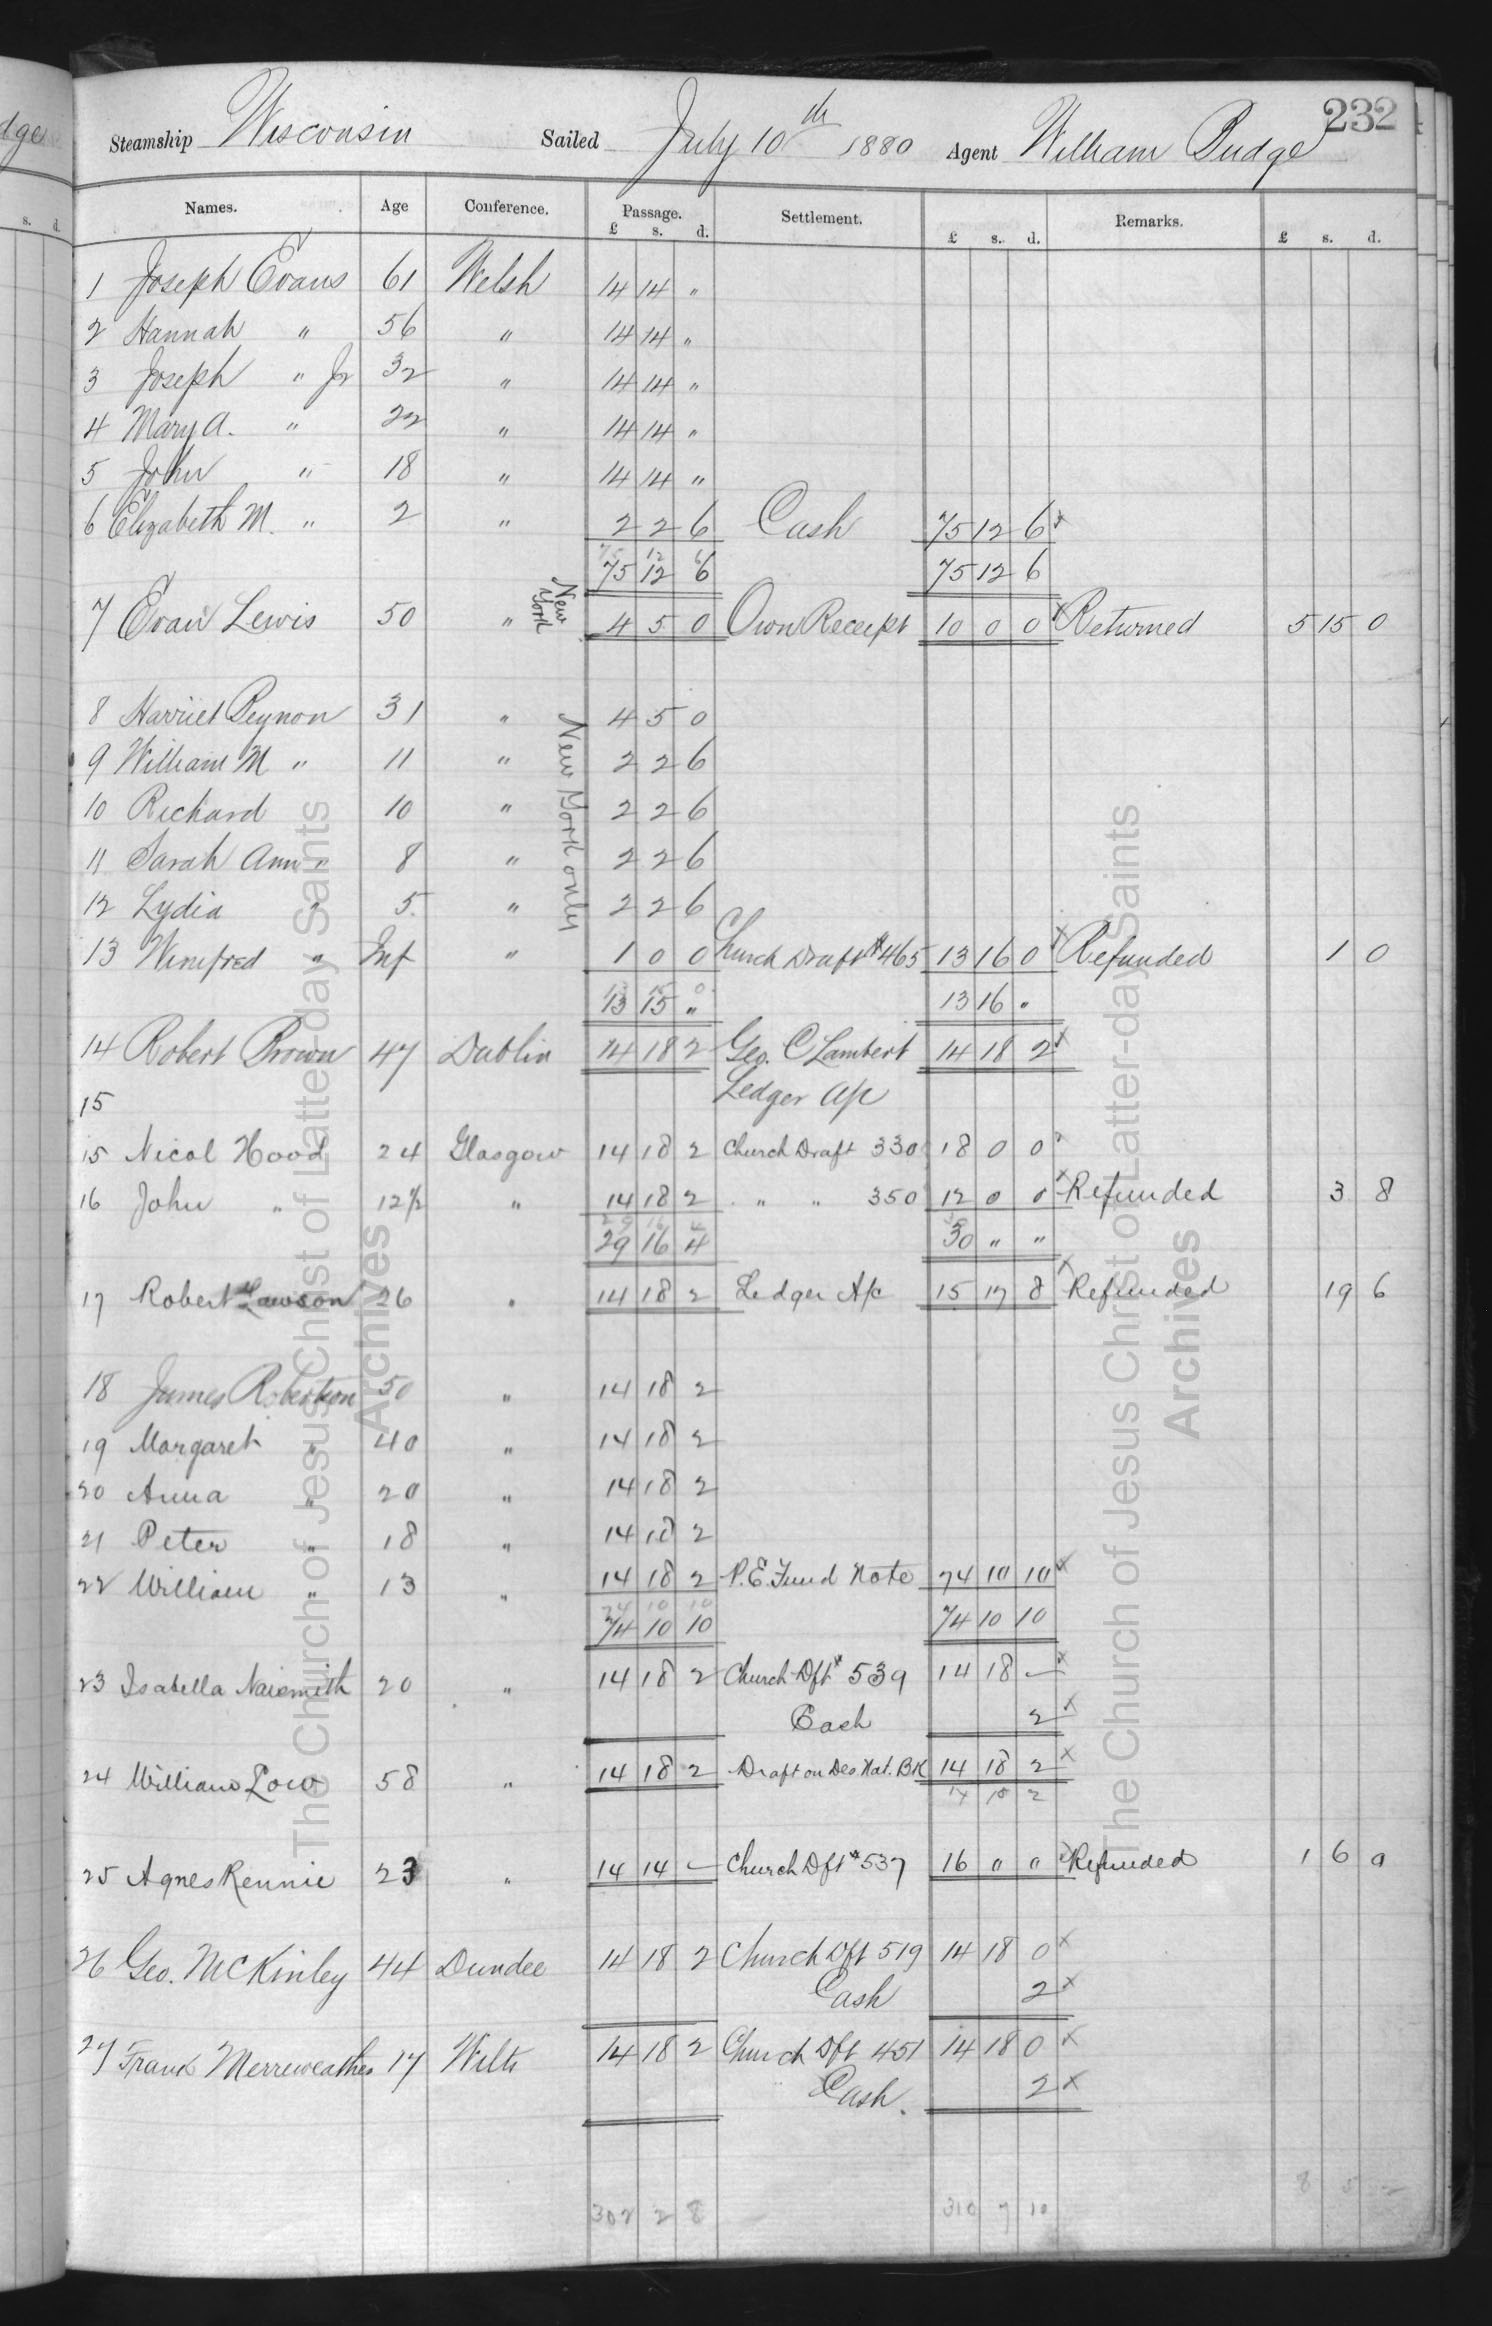 232
Steamship Wisconsin Sailed July 10th 1880 Agent William Budge
Names. Age Conference. Passage. Settlement. Remarks.
£ s. d. £ s. d. £ s. d.
1 Joseph Evans 61 Welsh 14 14 "
2 Hannah " 56 " 14 14 "
3 Joseph " Jr 32 " 14 14 "
4 Mary A. " 22 " 14 14 "
5 John " 18 " 14 14 "
6 Elizabeth M. " 2 " 2 2 6 Cash 75 12 6 x
75 12 6
75 12 6 75 12 6
7 Evan Lewis 50 " New York 4 5 0 Own Receipt 10 0 0 x Returned 5 15 0
8 Harriet Beynon 31 " New York only 4 5 0
9 William M " 11 " 2 2 6
10 Richard 10 " 2 2 6
11 Sarah Ann " 8 " 2 2 6
12 Lydia " 5 " 2 2 6
13 Winifred " Inf " 1 0 0 Church Draft #465 13 16 0 x Refunded 1 0
13 15 0
13 15 " 13 16 "
14 Robert Brown 47 Dublin 14 18 2 Geo. C Lambert 14 18 2 x
Ledger a/c
15
15 Nicol Hood 24 Glasgow 14 18 2 Church Draft 330 18 0 0
16 John " 12½ " 14 18 2 " " 350 12 0 0 x Refunded 3 8
29 16 4 30
29 16 4 30 " "
17 Robert Lawson 26 " 14 18 2 Ledger A/c 15 17 8 x Refunded 19 6
18 James Robertson 50 " 14 18 2
19 Margaret " 40 " 14 18 2
20 Anna " 20 " 14 18 2
21 Peter " 18 " 14 18 2
22 William " 13 " 14 18 2 P.E. Fund Note 74 10 10 x
74 10 10
74 10 10 74 10 10
23 Isabella Naismith 20 " 14 18 2 Church Dft # 539 14 18 — x
Cash 2 x
24 William Low 58 " 14 18 2 Draft on Des Nat. BK 14 18 2 x
14 18 2
25 Agnes Rennie 23 " 14 14 — Church Dft # 537 16 " " x Refunded 1 6 0
26 Geo. McKinley 44 Dundee 14 18 2 Church Dft 519 14 18 0 x
Cash 2 x
27 Frank Merreweather 17 Wilts 14 18 2 Church Dft 451 14 18 0 x
Cash. 2 x
8 5 2
302 2 8 310 7 10
The Church of Jesus Christ of Latter-day Saints
Archives
The Church of Jesus Christ of Latter-day Saints
Archives
s. d.